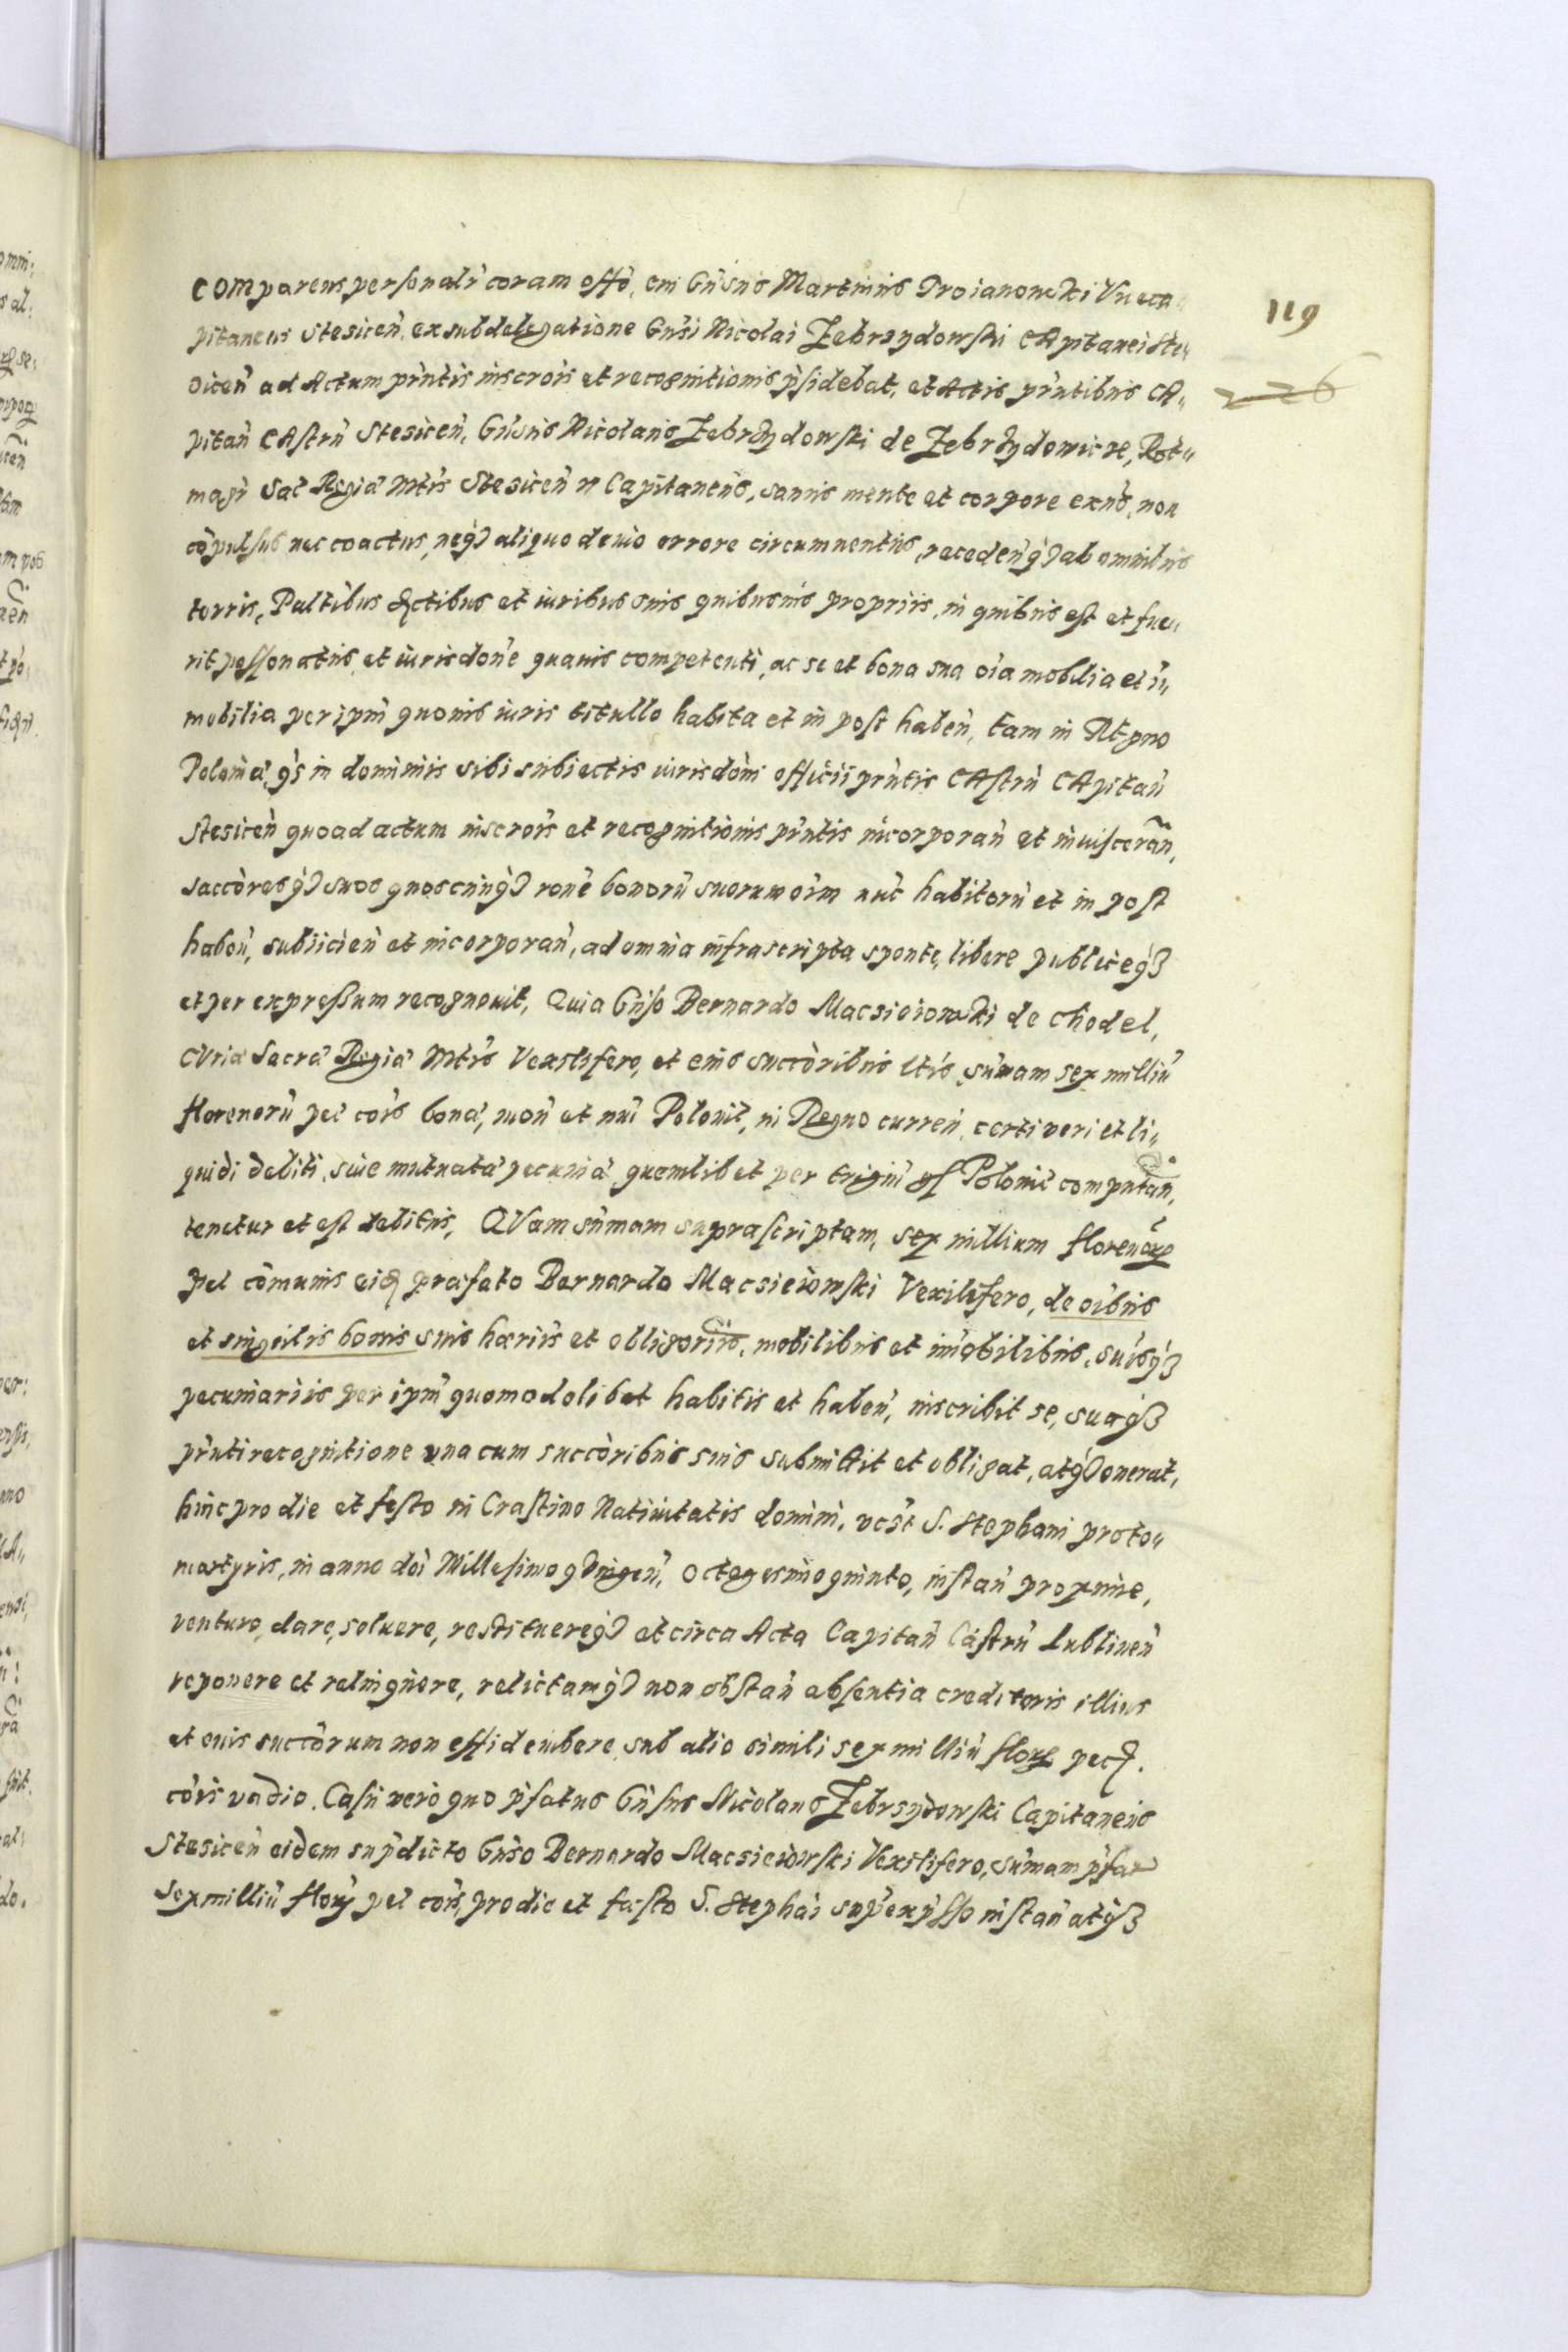 119
226
COMparens personalr coram offo, cui Gnsus Martinus Troianowski Viceca„
pitaneus Stesicen, ex subdelegatione Gnsi Nicolai Zebrzydowski CApitanei Ste„
sicen ad Actum pñtis inscrois et recognitionis psidebat, et Actis pñtibus CA„
pitañ CAstrñ Stesiceñ, Gnsus Nicolaus Zebrzydowski de Zebrzydowice, Rot„
magr Sac Regia Mtis Stesiceñ Capitaneus, sanus mente et corpore exñs, non
cōpulsus nec coactus neqȝ aliquo deuio errore circumuentus, recedenqȝ ab omnibus
terris, Paltibus Dctibus et iuribus suis quibusuis propriis, in quibus est et fue„
rit possonatus, et iurisdone quauis competenti, ac se et bona sua oia mobilia et ī„
mobilia per ipm quouis iuris titullo habita et in post habeñ, tam in Regno
Polonia, qs in dominiis sibi subiectis iurisdoni officii pñtis CAstrñ CApitañ
Stesiceñ quoad actum inscrois et recognitionis pñtis incorporañ et inuiscerañ,
saccoresqȝ suos quoscunqȝ rone bonorū suorum oim nuc habitorū et in post
habeñ, subiicieñ et incorporañ, ad omnia infrascripta sponte, libere publiceqȝ
et per expressum recognouit, Quia Gnso Bernardo Macsieiowski de Chodel,
CVria Sacra Regia Mtis Vexillifero, et eius succoribus ltis, sūmam sex milliū
florenorū pec cois bona, moñ et nui Polonic, in Regno curreñ, certi veri et li„
quidi debiti, siue mutuata pecunia quemlibet per trigiñ gs Polonic computañ,
tenetur et est debitus, QVam sūmam suprascriptam, sex millium florenorꝝ
pec cōmunis eid prafato Bernardo Macsieiowski Vexilifero, de oibus
et singulis bonis suis hæriis et obligoriis, mobilibus et imobilibus, suisqȝ
pecuniariis per ipm quomodolibet habitis et habeñ, inscribit se, suaqȝ
pñti recognitione vna cum succoribus suis submittit et obligat, atqȝ onerat,
hinc pro die et festo in Crastino Natiuitatis domini, vcst S. Stephani proto„
martyris, in anno doi Millesimo qȝingeñ, Octogesimo quinto, instañ proxime,
venturo, dare, soluere, restituereqȝ et circa Acta Capitañ Castrñ Lublineñ
reponere et relinquere, relictamqȝ non obstañ absentia creditoris illius
et euis succorum non effideiubere, sub alio simili sex milliū florꝝ pec.
cois vadio. Casu vero quo pfatus Gnsus Nicolaus Zebrsydowski Capitaneus
Stesiceñ eidem supdicto Gnso Bernardo Macsieiowski Vexillifero, sūmam pfat
Sex milliū florꝝ pec cois, pro die et festo S. Stephai supexpsso instañ atqȝ